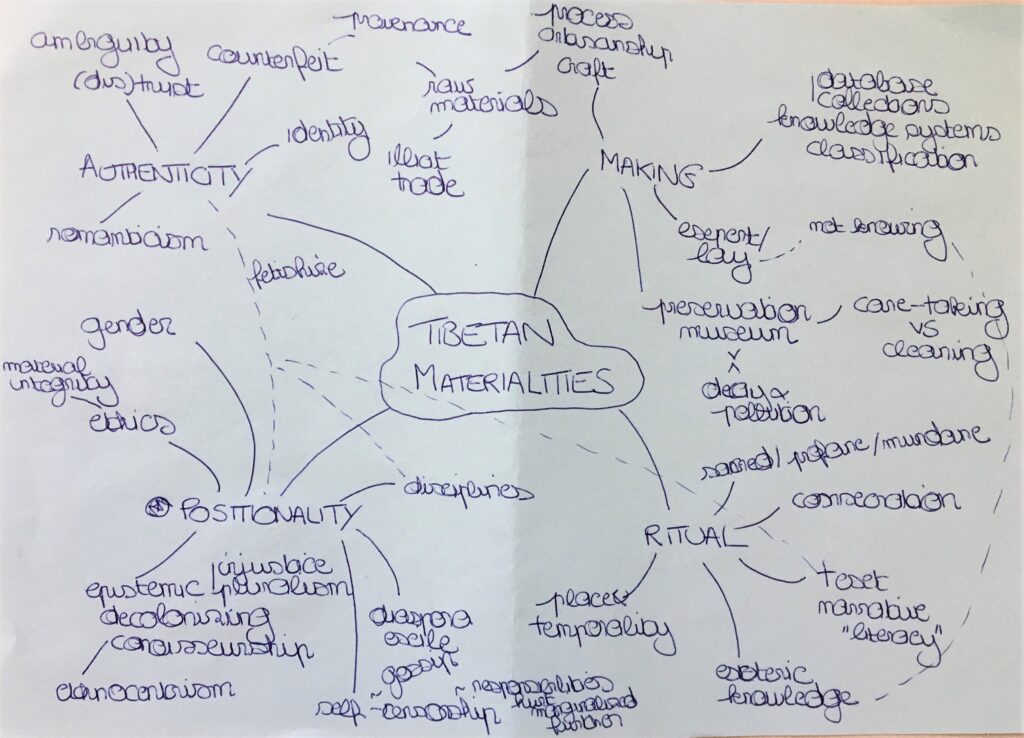 ambiguity
(dis)trust
counterfeit
provenance
process
artisanship
craft
raw
materials
illicit
trade
identity
AUTHENTICITY
romanticism
fetishize
MAKING
database
collections
knowledge systems
classification
expert/
lay
not knowing
preservation
museum
care-taking
vs
cleaning
decay &
pollution
TIBETAN
MATERIALITIES
gender
material
integrity
ethics
disciplines
POSITIONALITY
injustice
epistemic pluralism
decolonizing
ethnocentrism
diaspora
exile
gossip
self-censorship
responsibilities
marginalized
RITUAL
sacred/profane/mundane
consecration
text
narrative
"literacy"
esoteric
knowledge
places
temporality